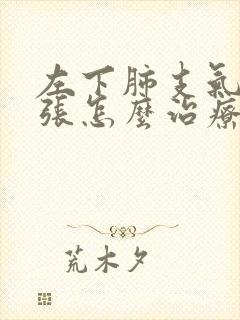 左下肺支氣
張怎麼治療
荒木夕